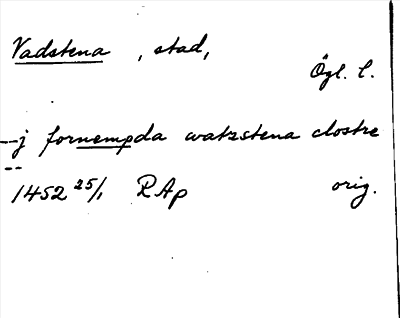 Vadstena, stad,
Ögl. l.
--j fornempda watzstena clostre
--
1452 25/1 RAp orig.